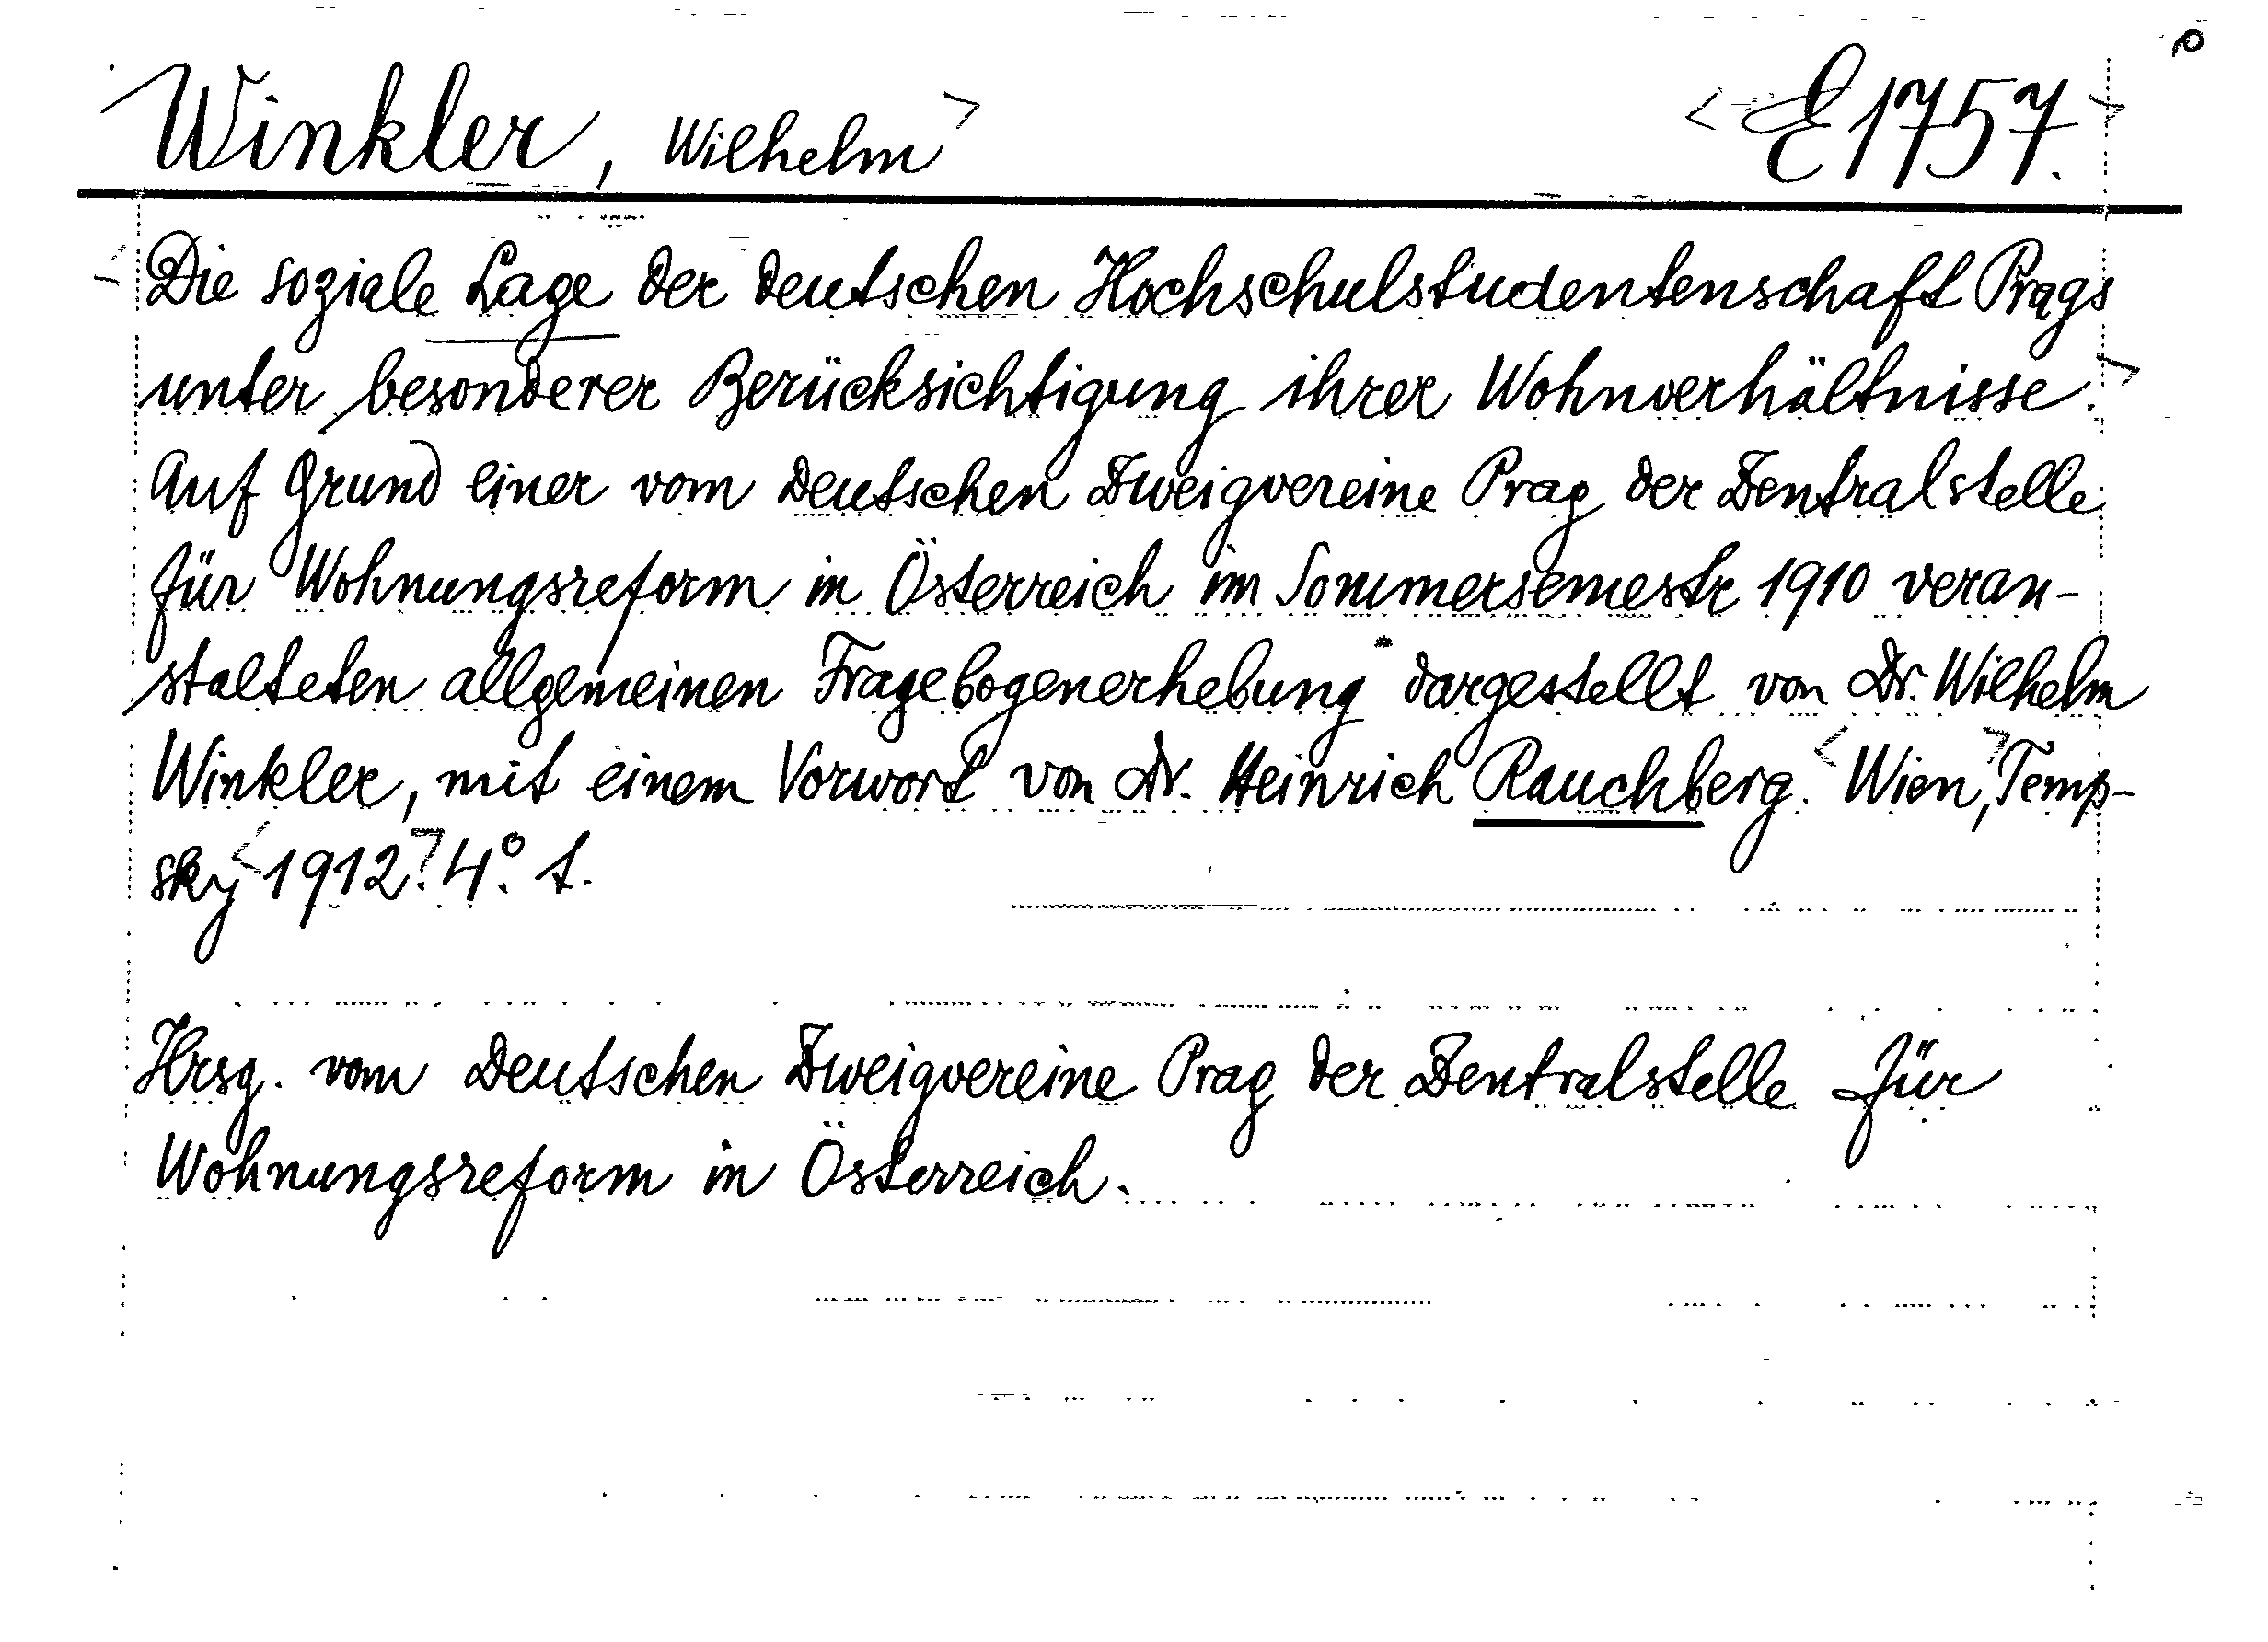 Winkler, Wilhelm> <E1757.>
<Die soziale Lage der deutschen Hochschulstudentenschaft Prags
unter besonderer Berücksichtigung ihrer Wohnverhältnisse.>
Auf Grund einer vom Deutschen Zweigvereine Prag der Zentralstelle
für Wohnungsreform in Österreich im Sommersemestr 1910 veran-
stalteten allgemeinen Fragebogenerhebung dargestellt von Dr. Wilhelm
Winkler, mit einem Vorwort von Dr. Heinrich Rauchberg. <Wien,> Temp-
sky <1912.> 4°.
Hrsg. vom Deutschen Zweigvereine Prag der Zentralstelle für
Wohnungsreform in Österreich.